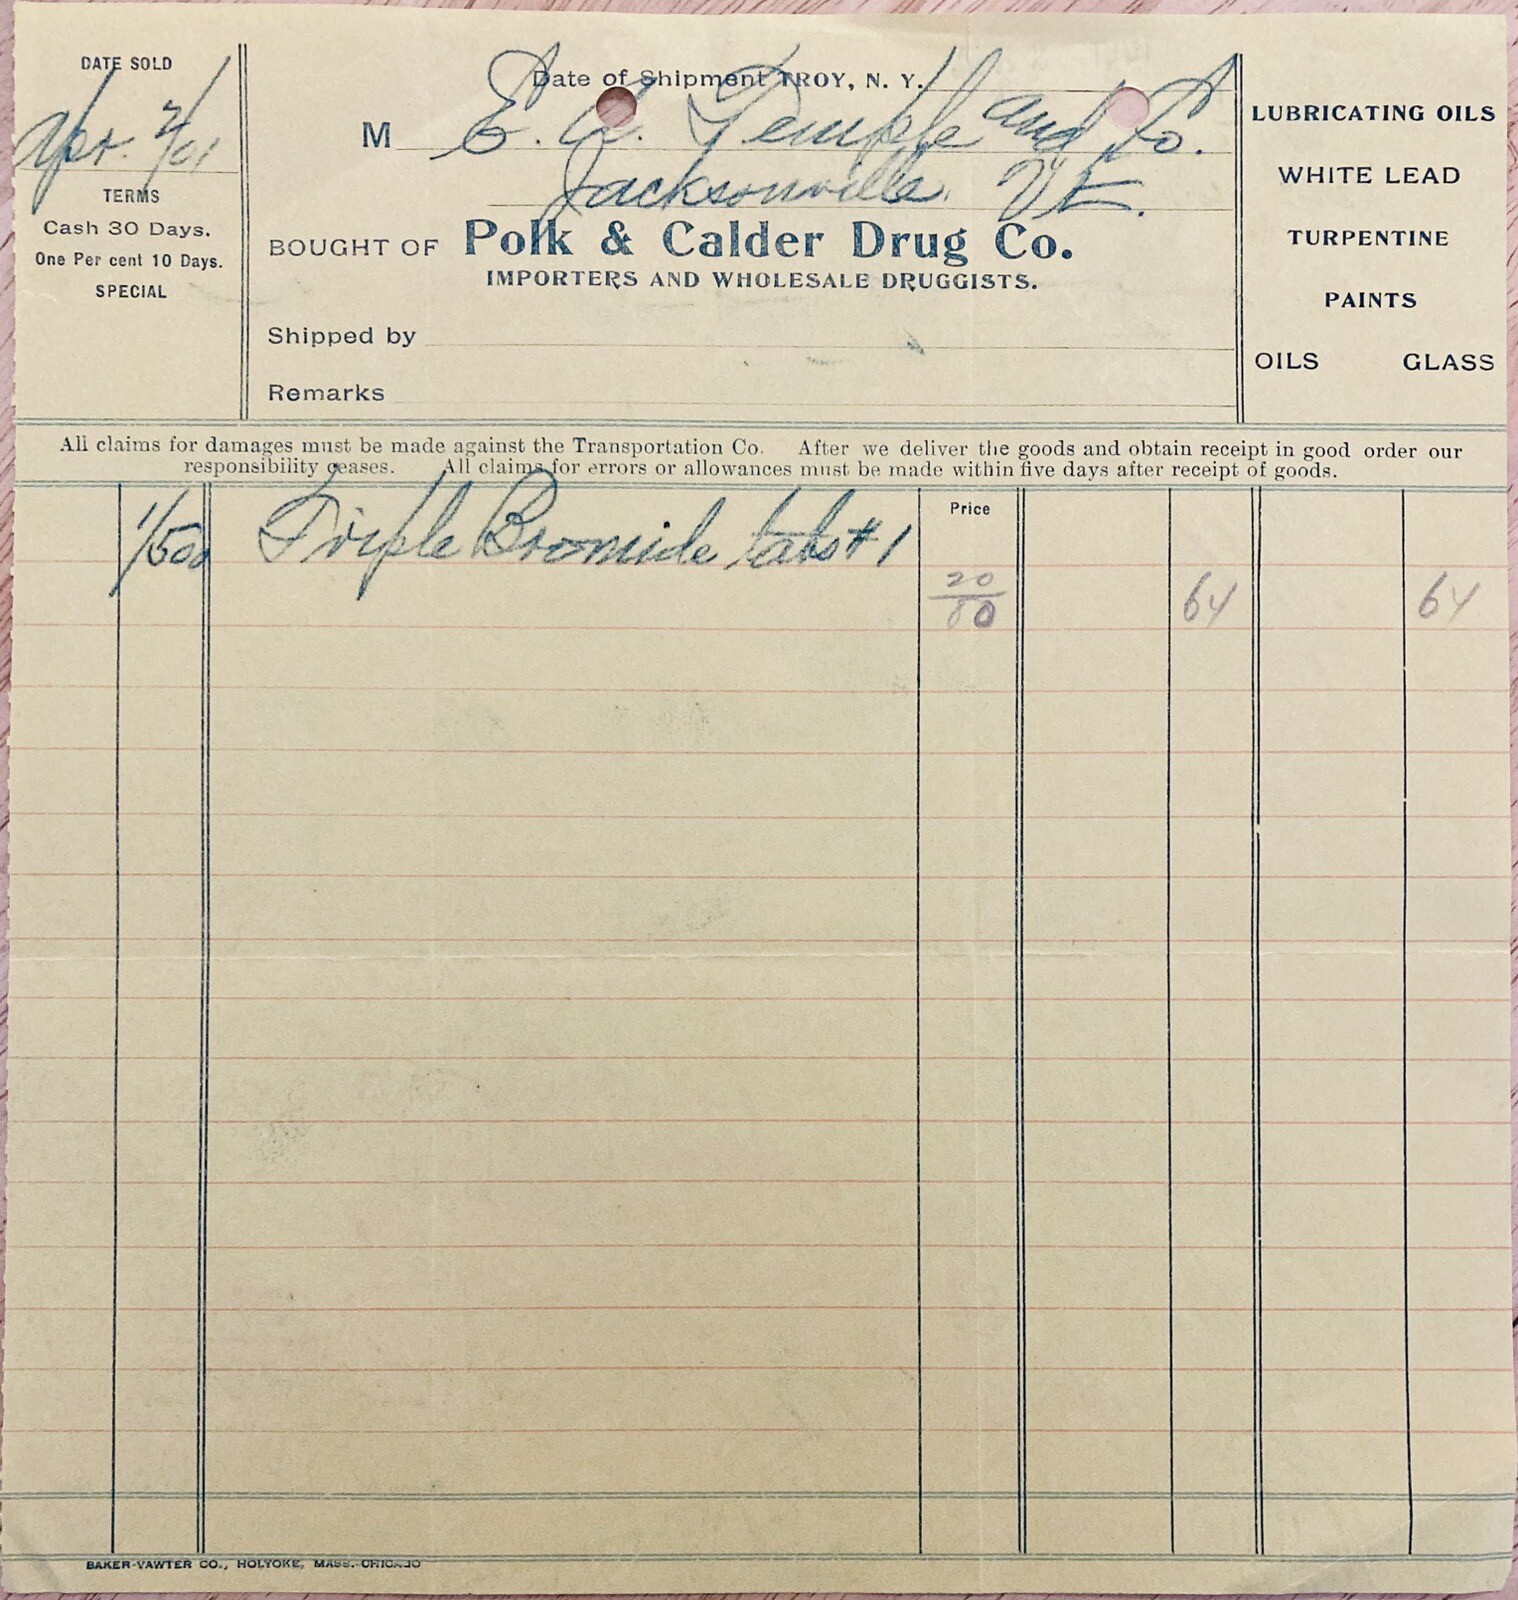 DATE SOLD
Apr. 2/01
TERMS
Cash 30 Days.
One Per cent 10 Days.
SPECIAL
Date of Shipment TROY, N. Y.
M E. A. Temple and Co.
Jacksonville, Vt.
BOUGHT OF Polk & Calder Drug Co.
IMPORTERS AND WHOLESALE DRUGGISTS.
Shipped by
Remarks
LUBRICATING OILS
WHITE LEAD
TURPENTINE
PAINTS
OILS GLASS
All claims for damages must be made against the Transportation Co. After we deliver the goods and obtain receipt in good order our
responsibility ceases. All claims for errors or allowances must be made within five days after receipt of goods.
Price
1/500 Triple Bromide tabs #1
20/80 64 64
BAKER-VAWTER CO., HOLYOKE, MASS.-CHICAGO